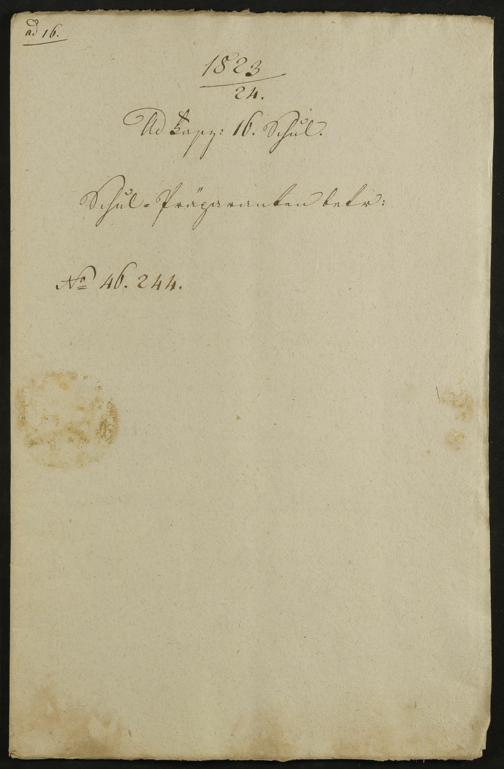 ad 16.
1823
24.
Ad Kapz: 16. Schul.
Schul-Präparanten betr:
No 46. 244.